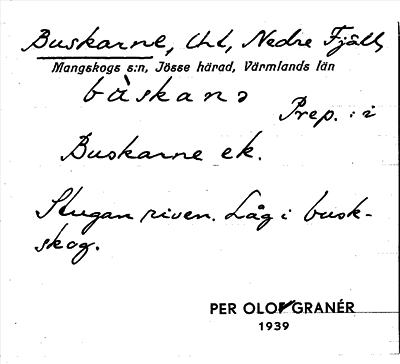 Buskarne, Uhl, Nedre Fjäll,
Mangskogs s:n, Jösse härad, Värmlands län
bàskanə
Prep.: i
Buskarne ek.
Stugan riven. Låg i busk-
skog.
PER OLOF GRANÉR
1939